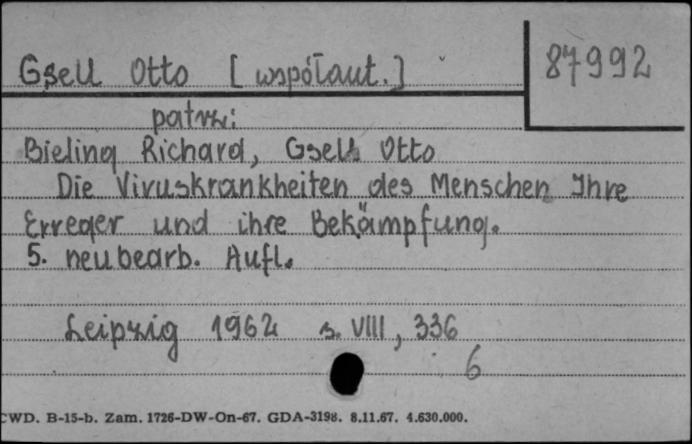 Gsell Otto [współaut.]
87992
patrz:
Bieling Richard, Gsell Otto
Die Viruskrankheiten des Menschen Ihre
Erreger und ihre Bekämpfung.
5. neubearb. Aufl.
Leipzig 1962 s. VIII, 336
6
CWD. B-15-b. Zam. 1726-DW-On-67. GDA-3198. 8.11.67. 4.630.000.